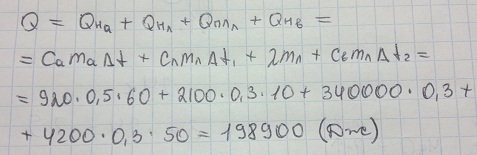 Q = Qна + Qнл + Qплл + Qнв =
= CaмaΔt + CлmлΔt₁ + λmл + CвmлΔt₂ =
= 920·0,5·60 + 2100·0.3·10 + 340000·0.3 +
+ 4200·0.3·50 = 198900 (Дж)